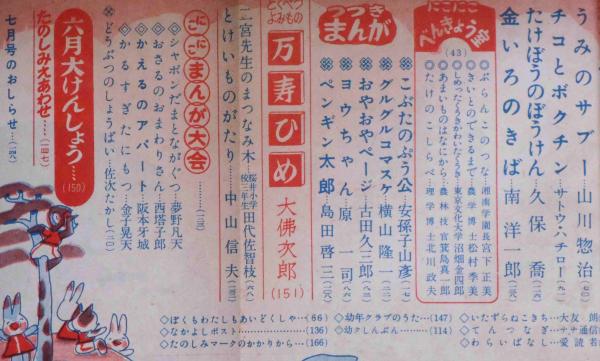 うみのサブー…山川惣治…(七〇)
チコとボクチン…サトウ・ハチロー…(九一)
たけぼうのぼうけん…久保喬…(二六)
金いろのきば…南洋一郎
にこにこべんきょう室
(43)
ぶらんこのつな…湘南学園長宮下正美
きいとのできるまで…農学博士松村季美
しめったくうきかわいたくうき…東京文化大学沼畑金四郎
あまいものはなにから…農林技官箕島真一郎
たけのこしらべ…理学博士北川政夫
つづきまんが
こぶたのぷう公…安孫子山彦
グルグルコマスケ…横山隆一
おやおやページ…古田久三郎
ヨウちゃん…原一司
ペンギン太郎…島田啓三
とくべつよみもの
万寿ひめ
大佛次郎
(151)
二宮先生のまつなみ木…桜井小学校三年生田代佐智枝
とけいものがたり…中山信夫
にこにこまんが大会
シャボンだまとながぐつ…夢野凡天
おさるのおまわりさん…西塔子郎
かえるのアパート…阪本牙城
かるすぎたにもつ…金子晃天
どうぶつのしょうばい…佐次たかし
六月大けんしょう…(150)
たのしみえあわせ…(一四七)
七月号のおしらせ
ぼくもわたしもあいどくしゃ…(66)
なかよしポスト…(136)
たのしみマークのかかりから…(166)
幼年クラブのうた…(147)
幼クしんぶん…(114)
いたずらねこきち…大友朗
てんつなぎ…サナ通信
わらいばなし…愛読者